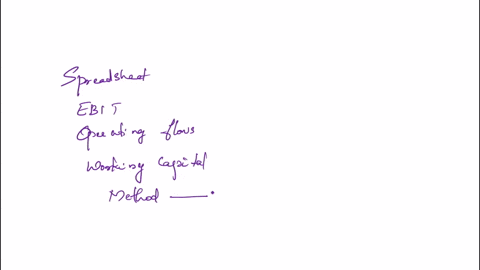 Spreadsheet
EBIT
Operating flows
Working Capital
Method